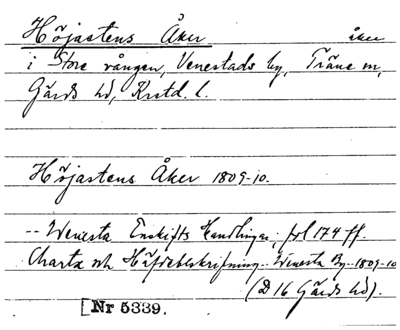 Höjastens Åker åker
i Store vången, Venestads by, Träne sn,
Gärds hd, Krstd. l.
Höjastens Åker 1809-10.
-- Wenesta Enskifts Handlingar, fol 174 ff.
Charta och Häfdebeskrifning. Wenesta By. 1809-10
(D 16 Gärds hd).
[Nr 5339.